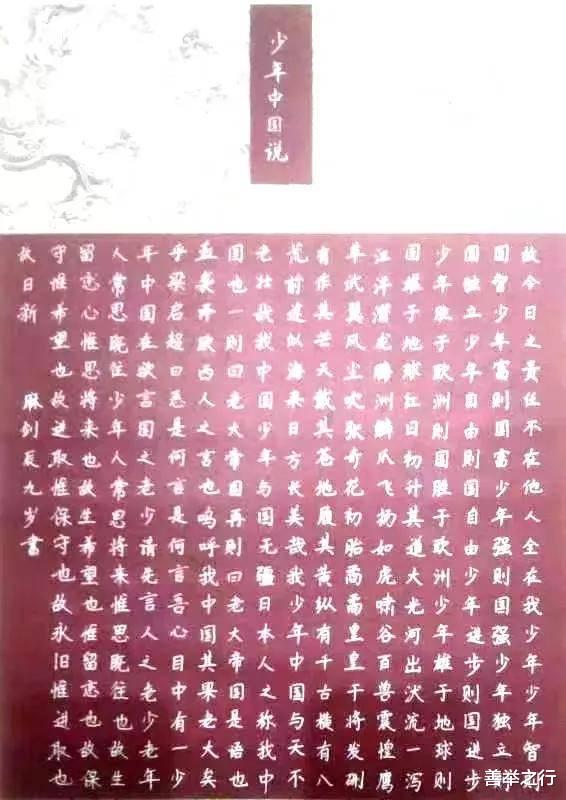 少年中国说
故今日之责任不在他人全在我少年少年智则
国智少年富则国富少年强则国强少年独立则
国独立少年自由则国自由少年进步则国进步
少年胜于欧洲则国胜于欧洲少年雄于地球则
国雄于地球红日初升其道大光河出伏流一泻
汪洋潜龙腾渊鳞爪飞扬如虎啸谷百兽震惶鹰
隼试翼风尘吹张奇花初胎矞矞皇皇干将发硎
有作其芒天戴其苍地履其黄纵有千古横有八
荒前途似海来日方长美哉我少年中国与天不
老壮哉我中国少年与国无疆日本人之称我中
国也一则曰老大帝国再则曰老大帝国是语也
盖袭译欧西人之言也呜呼我中国其果老大矣
乎梁启超曰恶是何言是何言吾心目中有一少
年中国在欲言国之老少请先言人之老少老年
人常思既往少年人常思将来惟思既往也故生
留恋心惟思将来也故生希望也惟留恋也故保
守惟希望也故进取惟保守也故永旧惟进取也
故日新 麻剑辰九岁书
善举之行